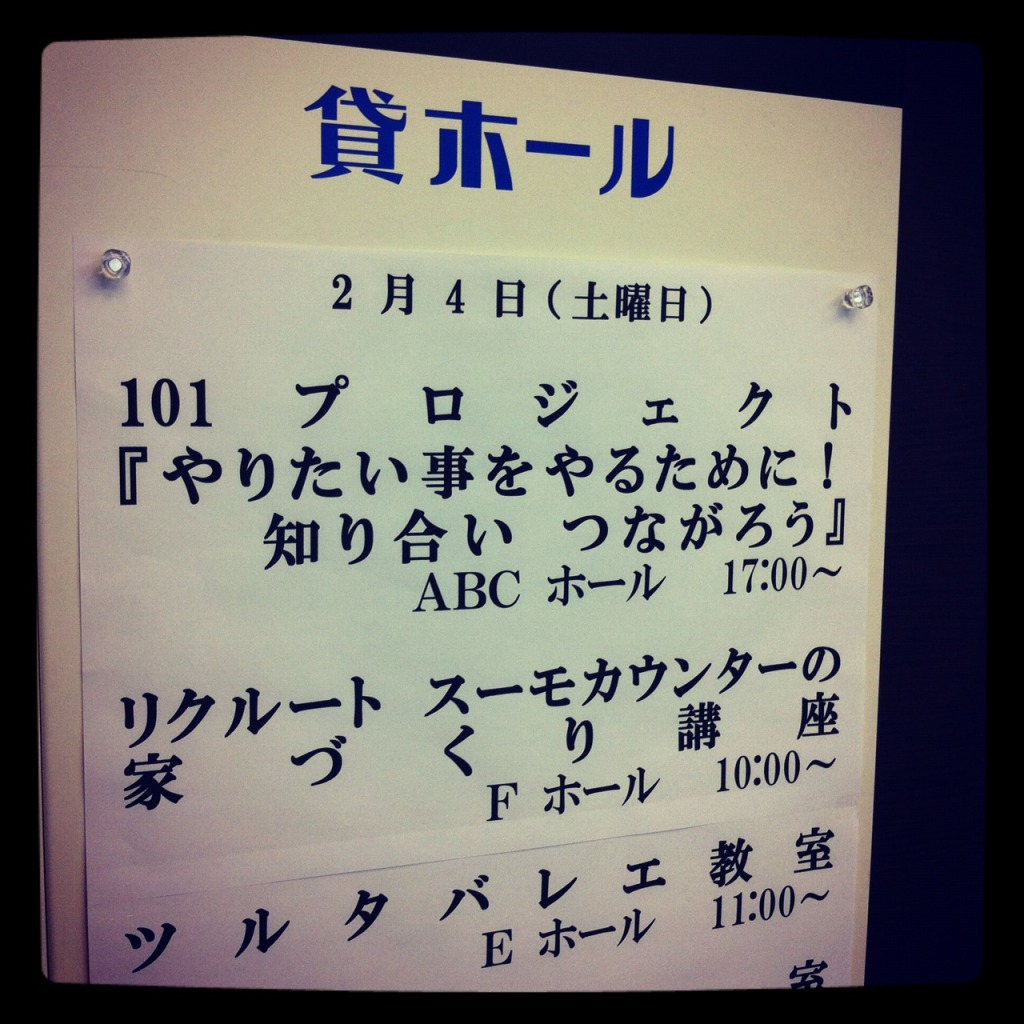 貸ホール
2月4日(土曜日)
101プロジェクト
『やりたい事をやるために!
知り合い つながろう』
ABCホール 17:00~
リクルート スーモカウンターの
家づくり講座
Fホール 10:00~
ツルタバレエ教室
Eホール 11:00~
室